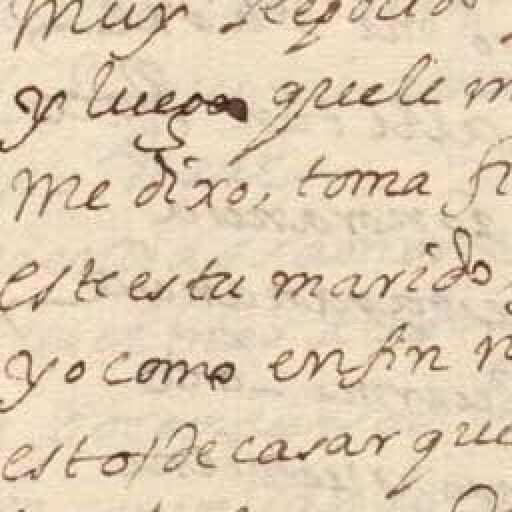 muy
y luego quele m
me dixo, toma
este es tu marido
yo como en fin
esto, de casar que